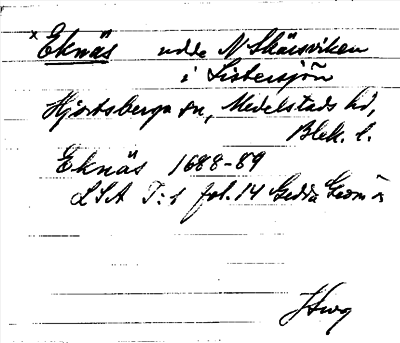 x Eknäs udde N Skärsviken
i Listersjön
Hjortsberga sn, Medelstads hd,
Blek. l.
Eknäs 1688-89
LSA T:1 fol. 14 Gedda Geom ör